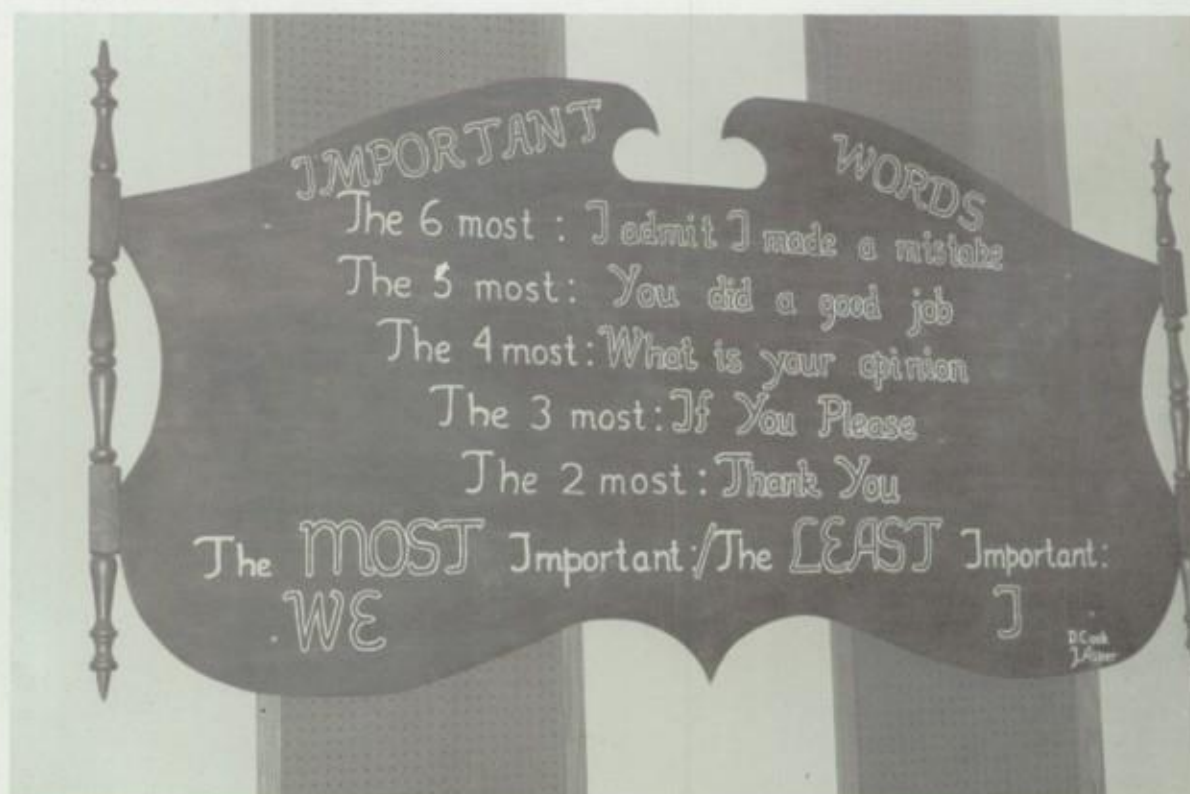 IMPORTANT WORDS
The 6 most : I admit I made a mistake
The 5 most: You did a good job
The 4 most: What is your opinion
The 3 most: If You Please
The 2 most: Thank You
The MOST Important:/The LEAST Important:
WE I
D. Cook